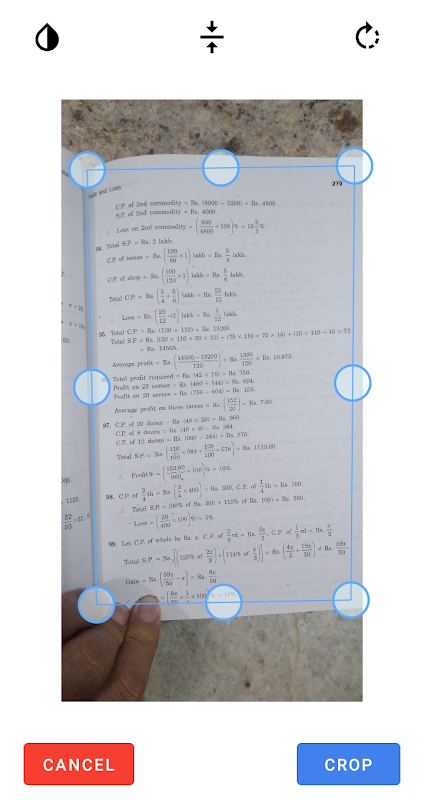 rofit and Loss 279
C.P. of 2nd commodity = Rs. (8000 – 3200) = Rs. 4800.
S.P. of 2nd commodity = Rs. 4000.
∴ Loss on 2nd commodity = (800/4800 × 100)% = 16 2/3 %.
94. Total S.P. = Rs. 2 lakh.
C.P. of house = Rs. (100/80 × 1) lakh = Rs. 5/4 lakh.
C.P. of shop = Rs. (100/120 × 1) lakh = Rs. 5/6 lakh.
Total C.P. = Rs. (5/4 + 5/6) lakh = Rs. 25/12 lakh.
∴ Loss = Rs. (25/12 – 2) lakh = Rs. 1/12 lakh.
95. Total C.P. = Rs. (120 × 110) = Rs. 13200.
Total S.P. = Rs. [(30 × 110 + 30 × 12) + (75 × 110 + 75 × 14) + (15 × 110 – 15 × 7)]
= Rs. 14505.
Average profit = Rs. (14505 – 13200 / 120) = Rs. 1305/120 = Rs. 10.875.
Total profit required = Rs. (42 × 18) = Rs. 756.
Profit on 22 sarees = Rs. (460 + 144) = Rs. 604.
Profit on 20 sarees = Rs. (756 – 604) = Rs. 152.
Average profit on these sarees = Rs. (152/20) = Rs. 7.60.
97. C.P. of 20 dozen = Rs. (48 × 20) = Rs. 960.
C.P. of 8 dozen = Rs. (48 × 8) = Rs. 384.
C.P. of 12 dozen = Rs. (960 – 384) = Rs. 576.
Total S.P. = Rs. (110/100 × 384 + 120/100 × 576) = Rs. 1113.60.
∴ Profit% = (153.60/960 × 100)% = 16%.
98. C.P. of 3/4 th = Rs. (3/4 × 400) = Rs. 300, C.P. of 1/4 th = Rs. 100.
∴ Total S.P. = (90% of Rs. 300 + 110% of Rs. 100) = Rs. 380.
∴ Loss = (20/400 × 100)% = 5%.
99. Let C.P. of whole be Rs. x. C.P. of 2/3 rd = Rs. 2x/3, C.P. of 1/3 rd = Rs. x/3.
Total S.P. = Rs. [(120% of 2x/3) + (114% of x/3)] = Rs. (4x/5 + 19x/50) = Rs. 59x/50
Gain = Rs. (59x/50 – x) = Rs. 9x/50
= (9x/50 × 1/x × 100)% = 18%.
x = 20
1125.
52/53
CANCEL
CROP